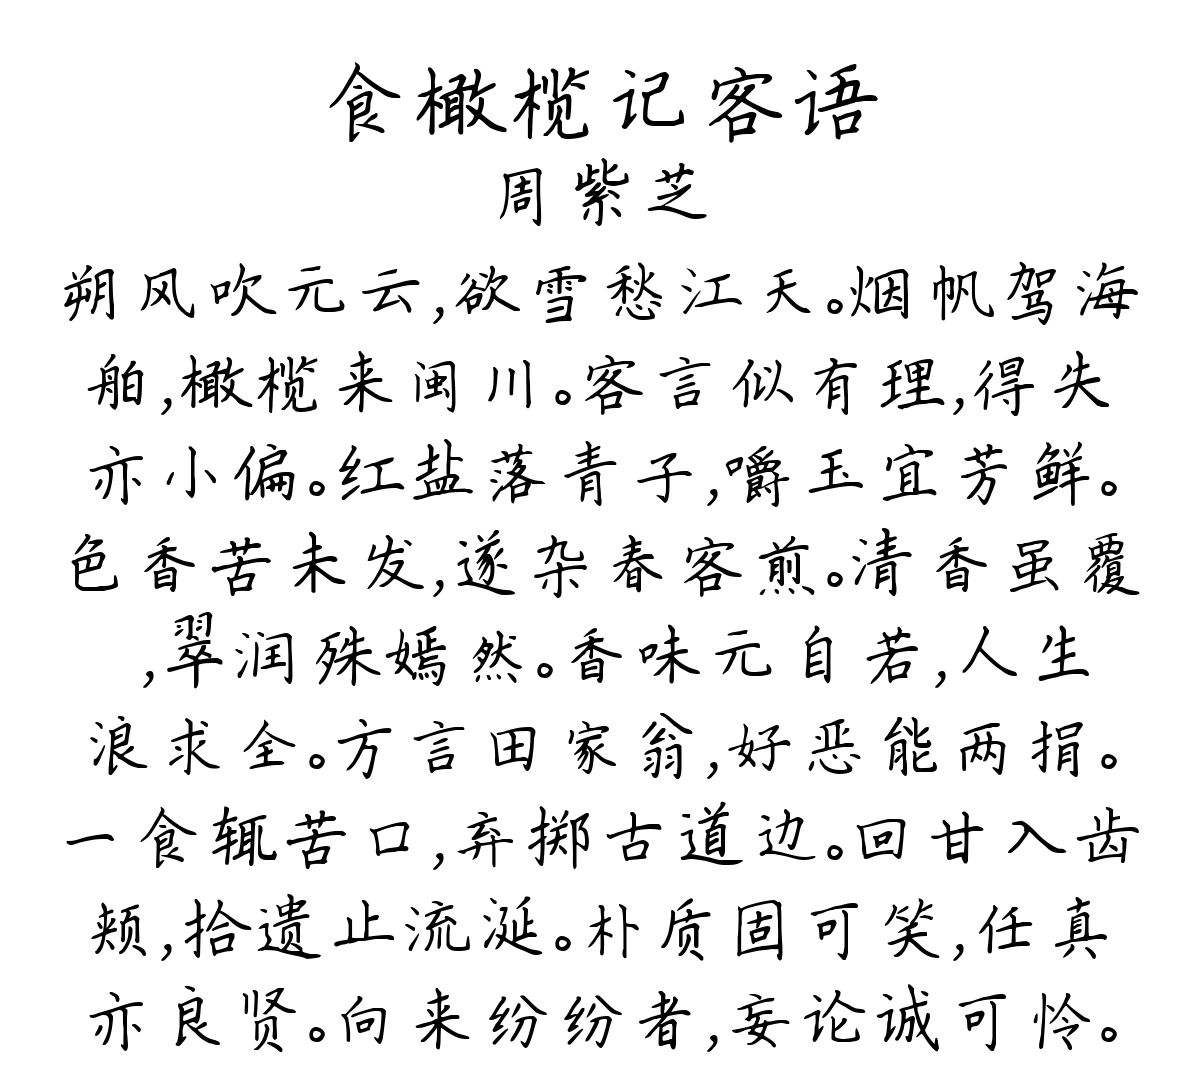 食橄榄记客语
周紫芝
朔风吹元云,欲雪愁江天。烟帆驾海
舶,橄榄来闽川。客言似有理,得失
亦小偏。红盐落青子,嚼玉宜芳鲜。
色香苦未发,遂杂春客煎。清香虽覆
,翠润殊嫣然。香味元自若,人生
浪求全。方言田家翁,好恶能两捐。
一食辄苦口,弃掷古道边。回甘入齿
颊,拾遗止流涎。朴质固可笑,任真
亦良贤。向来纷纷者,妄论诚可怜。